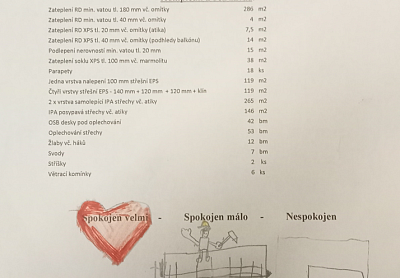 Zateplení RD min. vatou tl. 180 mm vč. omítky 286 m2
Zateplení RD min. vatou tl. 40 mm vč. omítky 4 m2
Zateplení RD XPS tl. 20 mm vč. omítky (atika) 7,5 m2
Zateplení RD XPS tl. 40 mm vč. omítky (podhledy balkónu) 14 m2
Podlepení nerovností min. vatou tl. 20 mm 15 m2
Zateplení soklu XPS tl. 100 mm vč. marmolitu 38 m2
Parapety 18 ks
Jedna vrstva nalepení 100 mm střešní EPS 119 m2
Čtyři vrstvy střešní EPS - 140 mm + 120 mm + 120 mm + klín 119 m2
2 x vrstva samolepící IPA střechy vč. atiky 265 m2
IPA posypaná střechy vč. atiky 146 m2
OSB desky pod oplechování 42 bm
Oplechování střechy 53 bm
Žlaby vč. háků 12 bm
Svody 7 bm
Stříšky 2 ks
Větrací komínky 6 ks
Spokojen velmi - Spokojen málo - Nespokojen